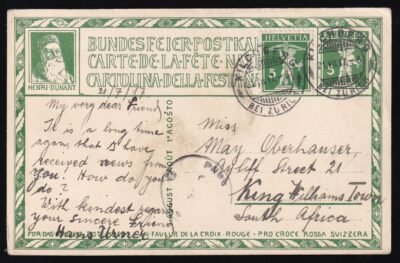 BUNDESFEIER-POSTKA
CARTE·DE·LA·FÊTE·N
CARTOLINA·DELLA·FEST
HENRI·DUNANT
HELVETIA
5
5
BEI ZÜRIC
BEI ZÜRIC
21/7/17
My very dear Friend
It is a long time
again, that I have
received news from
You! How do you
do?
With kindest regards
your sincere Friend
Hans Urner
1. AUGUST 1 AOÛT 1° AGOSTO
Miss
May Oberhauser
Aycliff Street 21
King Williams Town
South Africa
FÜR DAS
FAVEUR DE LA CROIX-ROUGE - PRO CROCE ROSSA SVIZZERA